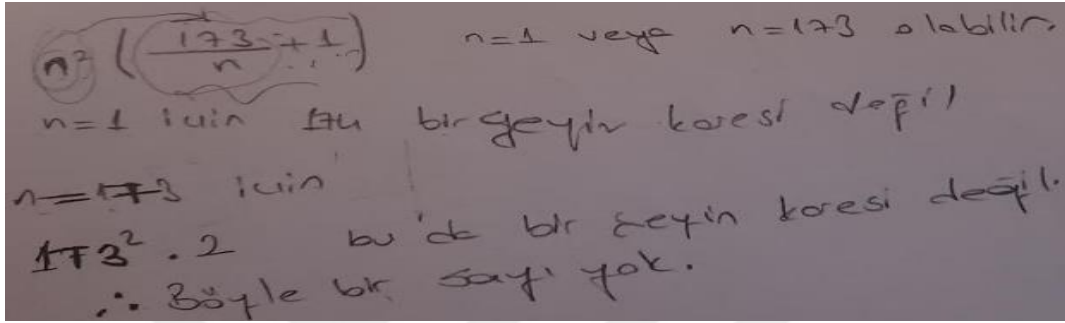 n² (173/n + 1) n=1 veya n=173 olabilir.
n=1 için 174 bir şeyin karesi değil
n=173 için
173² . 2 bu da bir şeyin karesi değil.
∴ Böyle bir sayı yok.